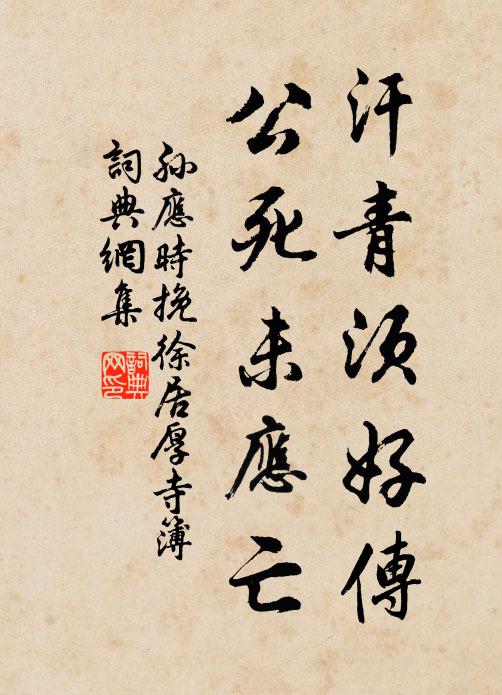 汗青須好傳
公死未應亡
孫應時挽徐居厚寺簿
詞典網集
詞典網印